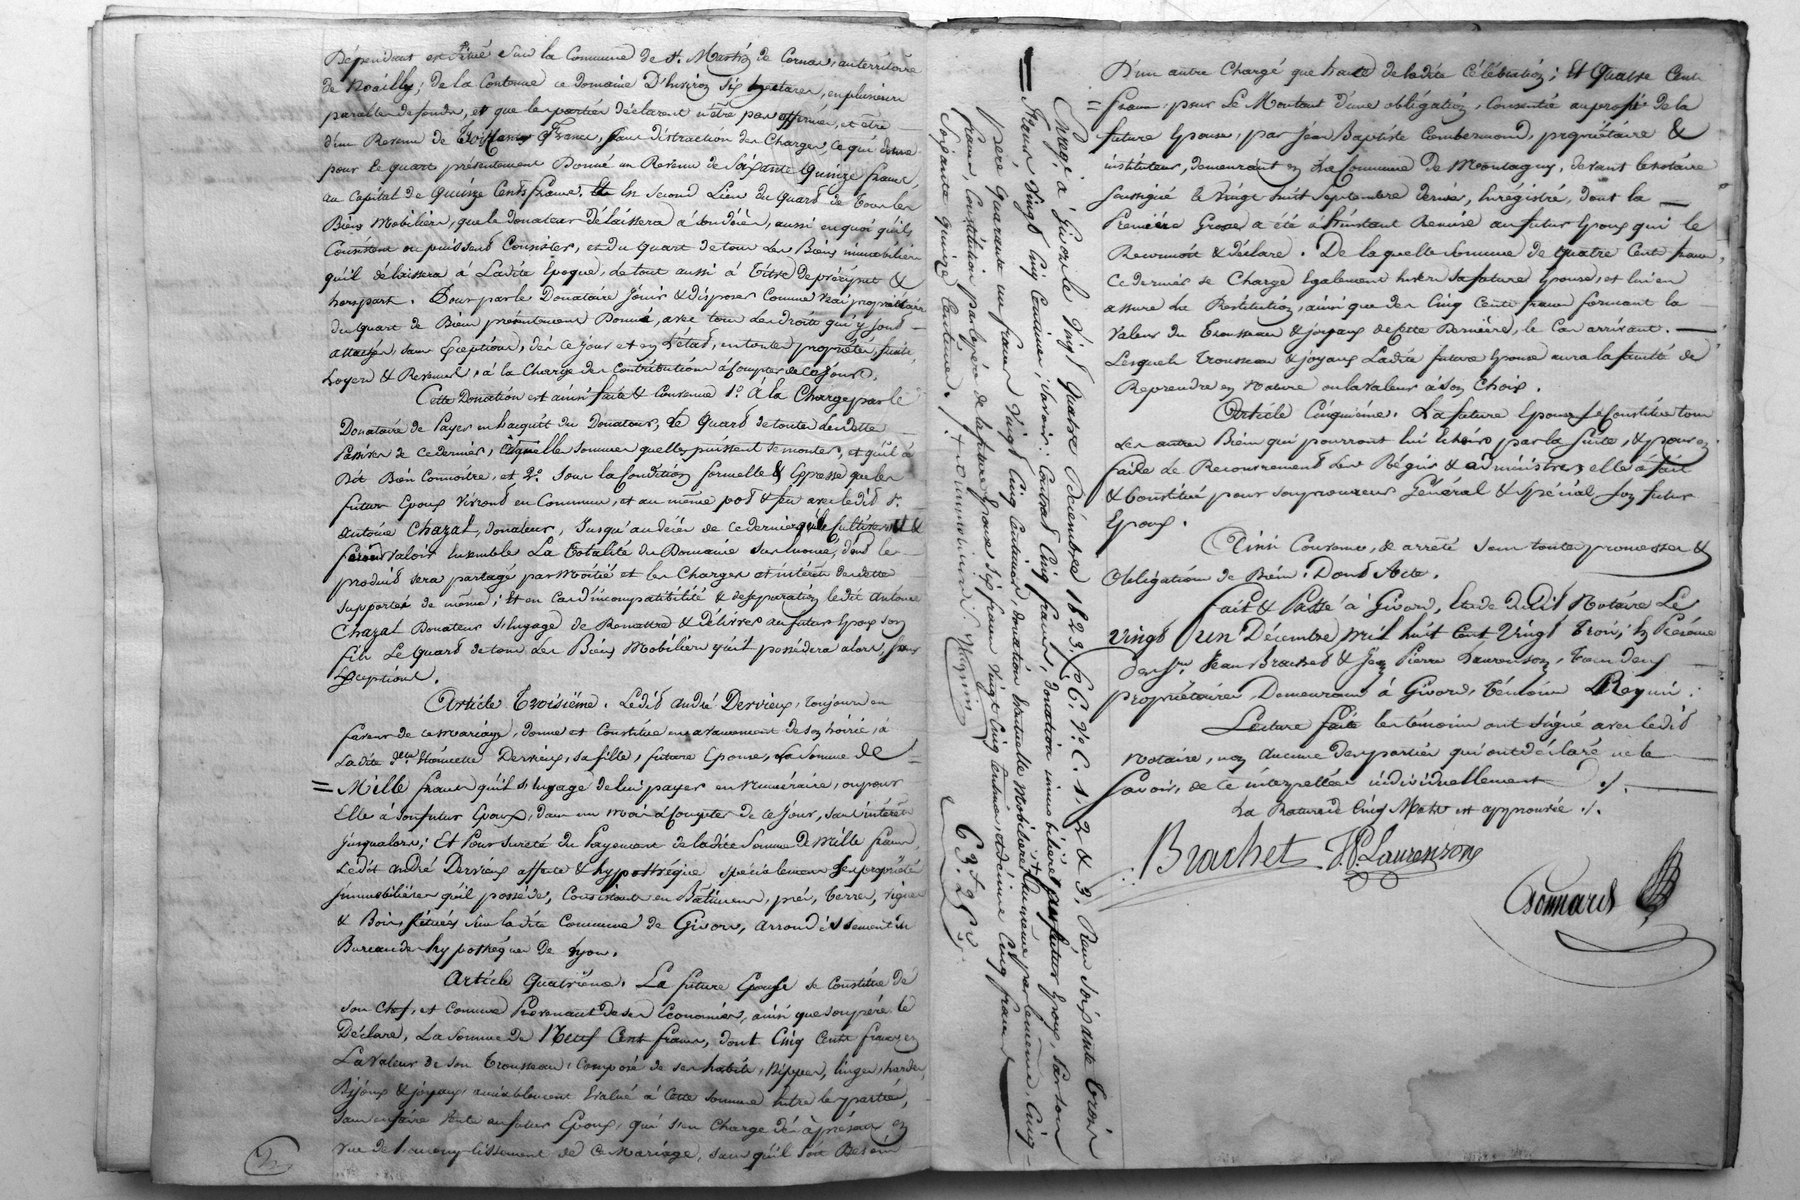 Dépendant est situé sur la Commune de St Martin de Cornas, au territoire
de Noailly; de la Contenue ce domaine D'Environ Six hectares, en plusieurs
parcelles de fonds, et que les parties déclarent n'être pas affermés, et être
d'un Revenu de Trois Cents francs, sans distraction des Charges, ce qui donne
pour le quart présentement Donné un Revenu de Soixante Quinze francs,
au Capital de Quinze Cents francs. En Second Lieu du Quard de tous les
Biens Mobiliers, que le donateur délaissera à son décès, aussi en quoi qu'ils
Consistent ou puissent Consister, et du quart de tous les Biens immobiliers
qu'il délaissera à Ladite Epoque, le tout aussi à Titre de préciput &
hors part. Pour par le Donataire Jouir & disposer Comme vrai propriétaire
du quart de Biens présentement Donné, avec tous les droits qui y sont
attachés, sans Exceptions, dès ce jour et en l'état, en toute propriété, fruits,
Loyers & Revenus, à la Charge des Contributions à Compter de ce jour.
Cette Donation est ainsi faite & Convenue 1° à la Charge par le
Donataire de Payer en l'acquit du Donateur, le Quard de toutes les dettes
Passives de ce dernier, à quelle somme quelles puissent se monter, et qu'il a
Dit Bien Connoitre, et 2° Sous la Condition formelle & Expresse que les
futurs Epoux Vivront en Commun, et au même pot & feu avec ledit Sr.
Antoine Chazal, donateur, Jusqu'au décès de ce dernier qu'ils cultiveront &
feront valoir Ensemble La Totalité du Domaine Susénoncé, dont les
produits sera partagé par Moitié et les Charges et intérêts des dettes
supportés de même; Et en Cas d'incompatibilité & de séparation ledit Antoine
Chazal Donateur S'Engage de Remettre & délivrer au futur Epoux son
fils Le Quard de tous les Biens Mobiliers qu'il possédera alors, sans
Exceptions.
Article Troisième. Ledit André Dervieux, toujours en
faveur de ce mariage, donne et Constitue en avancement de son hoirie, à
Ladite Delle Dervieux, sa fille, future Epouse, la Somme de
= Mille francs qu'il s'Engage de lui payer en numéraire, ou pour
Elle à son futur Epoux, dans un mois à Compter de ce Jour, sans intérêts
jusqu'alors; Et Pour Sureté du Payement de ladite Somme de Mille francs,
Ledit André Dervieux affecte & hypothèque spécialement les propriétés
immobilières qu'il possède, Consistant en Bâtimens, prés, Terres, vignes
& Bois situés Sur la dite Commune de Givors, arrondissement du
Bureau des hypothèques de Lyon.
Article Quatrième. La future Epouse se Constitue de
son Chef, et Comme Provenant de ses Economies, ainsi que son père le
Déclare, La somme de Neuf Cents francs, dont Cinq Cents francs en
La valeur de son trousseau, Composé de ses habits, Nippes, linges, hardes,
Bijoux & joyaux amiablement Evalué à Cette Somme Entre les parties,
sans en faire Vente au futur Epoux, qui s'en Charge dès à présent en
vue de l'accomplissement de Ce Mariage, sans qu'il soit Besoin
Enregistré à Givors le Vingt Quatre Décembre 1823. f° 6. V° C. 1, 2 & 3. Reçu Soixante Trois
francs Vingt Cinq Centimes, savoir: Contrat Cinq francs, donation immobilière au futur Epoux, par son
père Quarante un francs Vingt Cinq Centimes, donation Eventuelle Mobiliaire & Immeubles par le même, Cinq
francs, Constitution par le père de la future Epouse, Six francs Vingt Cinq Centimes, & décime Cinq francs
Soixante Quinze Centimes.
63f 25c
D'un autre Chargé que hauté de ladite Célébration; Et Quatre Cents
= francs, pour Le Montant d'une obligation, Consentie au profit de la
future Epouse, par Jean Baptiste Combermond, propriétaire &
instituteur, demeurant en La Commune de Montagny, devant le Notaire
soussigné le Vingt huit Septembre dernier, Enregistré, dont la
Première Grosse a été à l'instant Remise au futur Epoux qui le
Reconnoit & déclare. De laquelle Somme de Quatre Cents francs
Ce dernier se Charge Egalement Envers sa future Epouse, et lui en
assure La Restitution, ainsi que des Cinq Cents francs formant la
Valeur du Trousseau & joyaux de cette Dernière, le Cas arrivant.
Lesquels Trousseau & joyaux Ladite future Epouse aura la faculté de
Reprendre en Nature ou la valeur à son Choix.
Article Cinquième. La future Epouse se Constitue tous
Les autres Biens qui pourront lui Echoir par la suite, & pour en
faire de Recouvrement Les Régir & administrer elle a fait
& Constitué pour son procureur Général & Spécial son futur
Epoux.
Ainsi Convenu, & arrêté sous toutes promesses &
Obligations de Biens. Dont Acte.
Fait & Passé à Givors, Etude dudit Notaire Le
Vingt un Décembre mil huit Cent Vingt Trois; En Présence
des Srs Jean Brachet & Jean Pierre Laurenson, Tous deux
propriétaires Demeurant à Givors, témoins Requis.
Lecture faite les témoins ont signé avec ledit
Notaire, non Aucune des parties qui ont déclaré ne le
Savoir, de Ce interpellées individuellement ./.
La Rature de Cinq Mots est approuvée ./.
Brachet JP. Laurenson